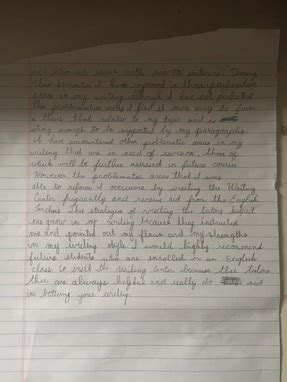 sentence. During
this semester I have improved in these particular
areas in my writing. Although I have not perfected
this problematic area I find it more easy to form
a thesis that relates to my topic and is
strong enough to be supported by my paragraphs.
I have encountered other problematic areas in my
writing that are in need of revision, those of
which will be further assessed in future courses.
However, the problematic areas that I was
able to reform I overcame by visiting the Writing
Center frequently and receive aid from the English
teachers. This strategie of visiting the tutors helped
me grow in my writing because they instructed
me and pointed out my flaws and my strengths
in my writing style. I would highly recommend
future students who are enrolled in an English
class to visit the Writing Center because the tutors
there are always helpful and really do aid
in bettering your writing.